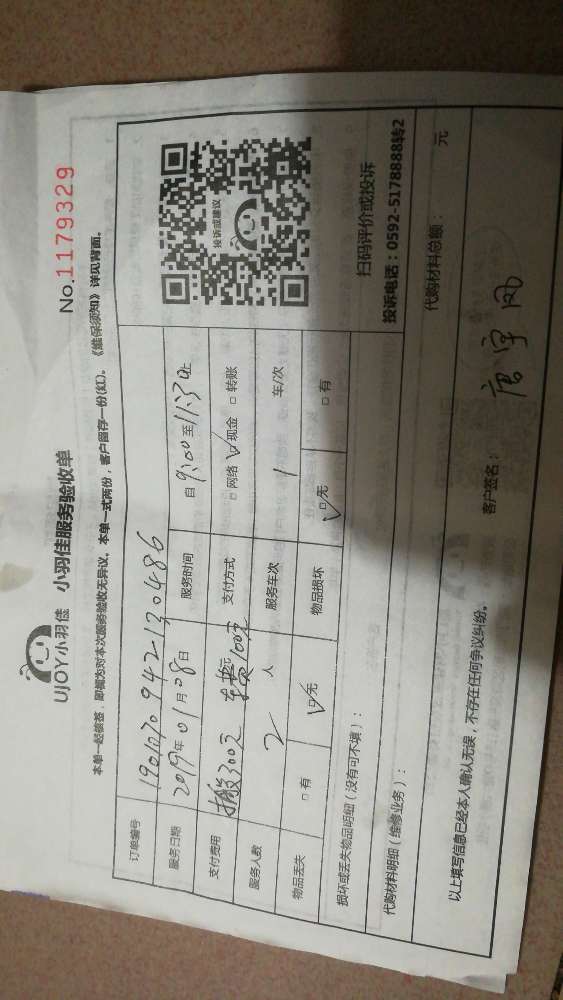 UJOY小羽佳 小羽佳服务验收单
No.1179329
本单一经核签，即视为对本次服务验收无异议。本单一式两份，客户留存一份(红)。《维保须知》详见背面。
订单编号 190107094213-0486
服务日期 2019年01月08日 服务时间 自9:00至11:30止
支付费用 搬 300元 车费100元 支付方式 □网络 □现金 □转账
服务人数 2 人 服务车次 1 车/次
物品丢失 □有 □无 物品损坏 □无 □有
投诉或建议
扫码评价或投诉
投诉电话：0592-5178888转2
损坏或丢失物品明细（没有可不填）：
代购材料明细（维修业务）：
代购材料总额： 元
以上填写信息已经本人确认无误，不存在任何争议纠纷。
客户签名：